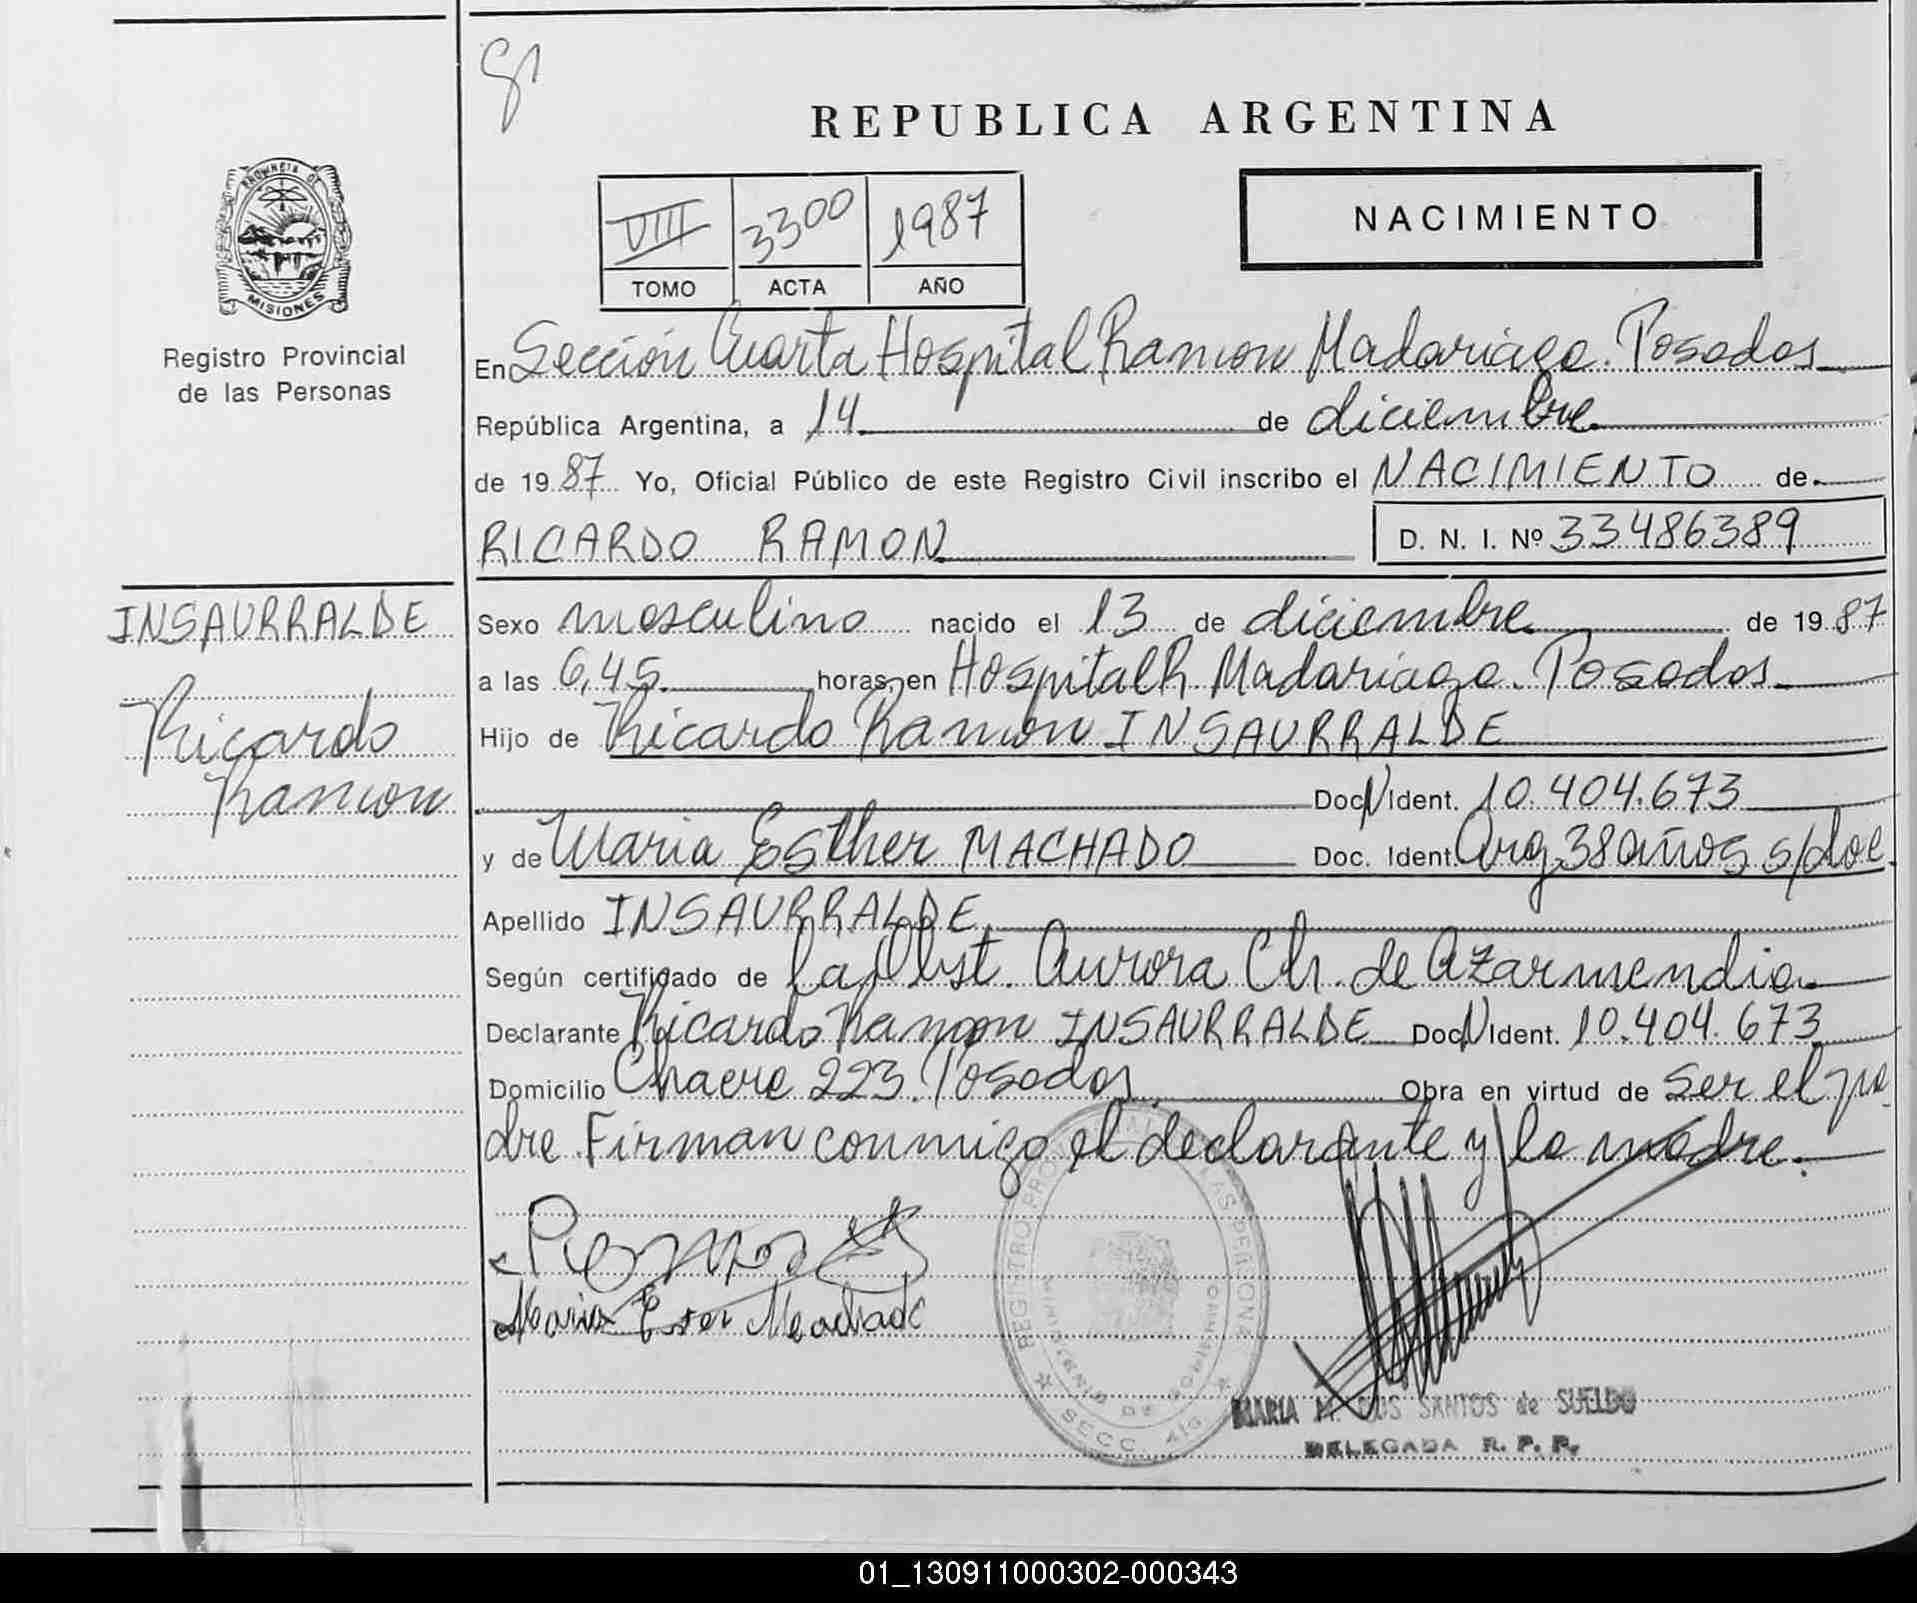 REPUBLICA ARGENTINA
PROVINCIA DE
MISIONES
Registro Provincial
de las Personas
VIII 3300 1987
TOMO ACTA AÑO
NACIMIENTO
En Sección Cuarta Hospital Ramon Madariaga. Posadas
República Argentina, a 14 de diciembre
de 1987 Yo, Oficial Público de este Registro Civil inscribo el NACIMIENTO de
RICARDO RAMON D. N. I. Nº 33486389
INSAURRALDE
Ricardo
Ramon
Sexo masculino nacido el 13 de diciembre de 1987
a las 6,45 horas, en Hospital R. Madariaga. Posadas
Hijo de Ricardo Ramon INSAURRALDE
Doc N Ident. 10.404.673
y de Maria Esther MACHADO Doc. Ident. Arg 38 años s/doc.
Apellido INSAURRALDE
Según certificado de la Obst. Aurora Ch. de Azarmendia
Declarante Ricardo Ramon INSAURRALDE Doc N Ident. 10.404.673
Domicilio Chacra 223. Posadas Obra en virtud de ser el pa
dre. Firman conmigo el declarante y la madre.
Maria Ester Machado
REGISTRO PROVINCIAL DE LAS PERSONAS
MINISTERIO DE GOBIERNO
SECC 4ta
MARIA M. DOS SANTOS de SUELDO
DELEGADA R. P. P.
01_130911000302-000343